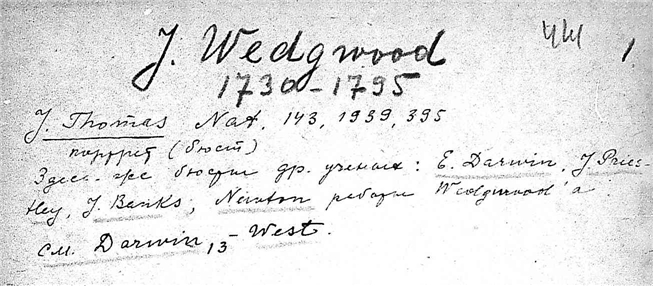 J. Wedgwood 1.
1730-1795
J. Thomas Nat, 143, 1939, 395
портрет (бюст)
Здесь же бюсты др. ученых: E. Darwin, J Pries-
tley, J. Banks, Newton работы Wedgwood'a
см. Darwin, 13 - West.